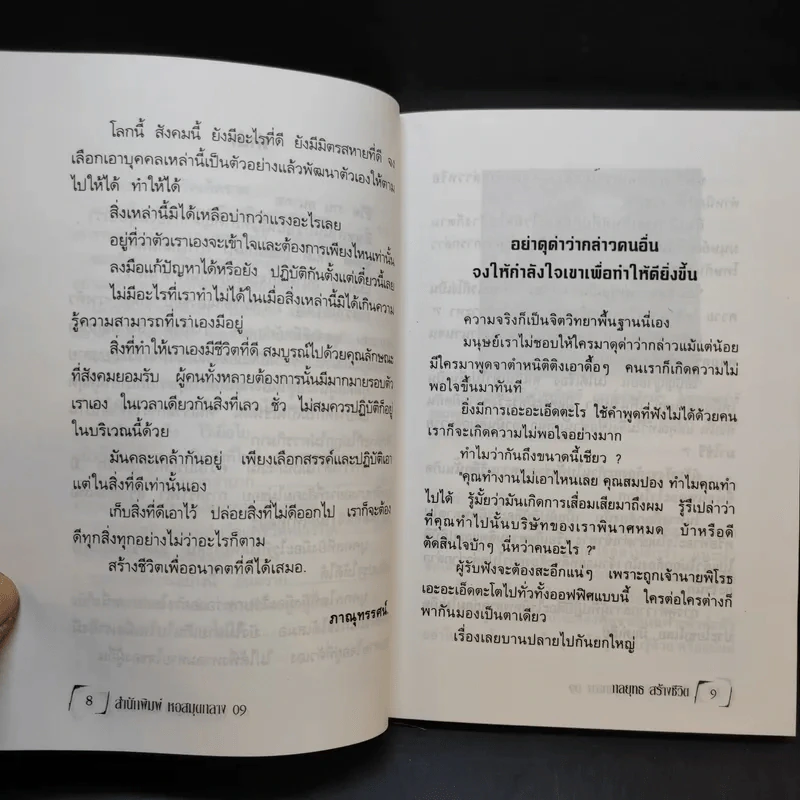 โลกนี้ สังคมนี้ ยังมีอะไรที่ดี ยังมีมิตรสหายที่ดี จง
เลือกเอาบุคคลเหล่านี้เป็นตัวอย่างแล้วพัฒนาตัวเองให้ตาม
ไปให้ได้ ทำให้ได้
สิ่งเหล่านี้มิได้เหลือบ่ากว่าแรงอะไรเลย
อยู่ที่ว่าตัวเราเองจะเข้าใจและต้องการเพียงไหนเท่านั้น
ลงมือแก้ปัญหาได้หรือยัง ปฏิบัติกันตั้งแต่เดี๋ยวนี้เลย
ไม่มีอะไรที่เราทำไม่ได้ในเมื่อสิ่งเหล่านี้มิได้เกินความ
รู้ความสามารถที่เราเองมีอยู่
สิ่งที่ทำให้เราเองมีชีวิตที่ดี สมบูรณ์ไปด้วยคุณลักษณะ
ที่สังคมยอมรับ ผู้คนทั้งหลายต้องการนั้นมีมากมายรอบตัว
เราเอง ในเวลาเดียวกันสิ่งที่เลว ชั่ว ไม่สมควรปฏิบัติก็อยู่
ในบริเวณนี้ด้วย
มันคละเคล้ากันอยู่ เพียงเลือกสรรค์และปฏิบัติเอา
แต่ในสิ่งที่ดีเท่านั้นเอง
เก็บสิ่งที่ดีเอาไว้ ปล่อยสิ่งที่ไม่ดีออกไป เราก็จะต้อง
ดีทุกสิ่งทุกอย่างไม่ว่าอะไรก็ตาม
สร้างชีวิตเพื่ออนาคตที่ดีได้เสมอ.
ภาณุทรรศน์
8 สำนักพิมพ์ หอสมุดกลาง 09
อย่าดุด่าว่ากล่าวคนอื่น
จงให้กำลังใจเขาเพื่อทำให้ดียิ่งขึ้น
ความจริงก็เป็นจิตวิทยาพื้นฐานนี่เอง
มนุษย์เราไม่ชอบให้ใครมาดุด่าว่ากล่าวแม้แต่น้อย
มีใครมาพูดจาตำหนิติติงเอาดื้อๆ คนเราก็เกิดความไม่
พอใจขึ้นมาทันที
ยิ่งมีการเอะอะเอ็ดตะโร ใช้คำพูดที่ฟังไม่ได้ด้วยคน
เราก็จะเกิดความไม่พอใจอย่างมาก
ทำไมว่ากันถึงขนาดนี้เชียว ?
"คุณทำงานไม่เอาไหนเลย คุณสมปอง ทำไมคุณทำ
ไปได้ รู้มั้ยว่ามันเกิดการเสื่อมเสียมาถึงผม รู้รึเปล่าว่า
ที่คุณทำไปนั้นบริษัทของเราพินาศหมด บ้าหรือดี
ตัดสินใจบ้าๆ นี่หว่าคนอะไร ?"
ผู้รับฟังจะต้องสะอึกแน่ๆ เพราะถูกเจ้านายพิโรธ
เอะอะเอ็ดตะโตไปทั่วทั้งออฟฟิศแบบนี้ ใครต่อใครต่างก็
พากันมองเป็นตาเดียว
เรื่องเลยบานปลายไปกันยกใหญ่
กลยุทธ สร้างชีวิต 9